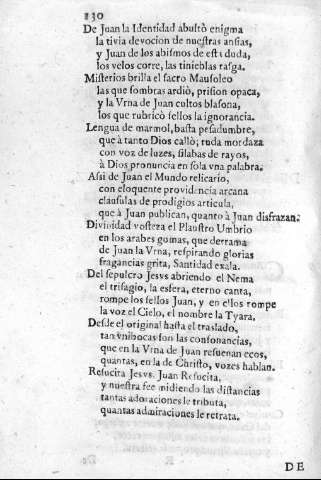 130
De Juan la Identidad abultò enigma
la tivia devocion de nuestras ansias,
y Juan de los abismos de esta duda,
los velos corre, las tinieblas rasga.
Misterios brilla el sacro Mausoleo
las que sombras ardiò, prision opaca,
y la Vrna de Juan cultos blasona,
los que rubricò sellos la ignorancia.
Lengua de marmol, basta pesadumbre,
que à tanto Dios callò; ruda mordaza
con voz de luzes, silabas de rayos,
à Dios pronuncia en sola vna palabra.
Assi de Juan el Mundo relicario,
con eloquente providencia arcana
clausulas de prodigios articula,
que à Juan publican, quanto à Juan disfrazan.
Divinidad vosteza el Plaustro Umbrio
en los arabes gomas, que derrama
de Juan la Vrna, respirando glorias
fragancias grita, Santidad exala.
Del sepulcro Jesvs abriendo el Nema
el trisagio, la esfera, eterno canta,
rompe los sellos Juan, y en ellos rompe
la voz el Cielo, el nombre la Tyara,
Desde el original hasta el traslado,
tan vnibocas son las consonancias,
que en la Vrna de Juan resuenan ecos,
quantas, en la de Christo, vozes hablan.
Resucita Jesvs. Juan Resucita,
y nuestra fee midiendo las distancias
tantas adoraciones le tributa,
quantas admiraciones le retrata.
DE